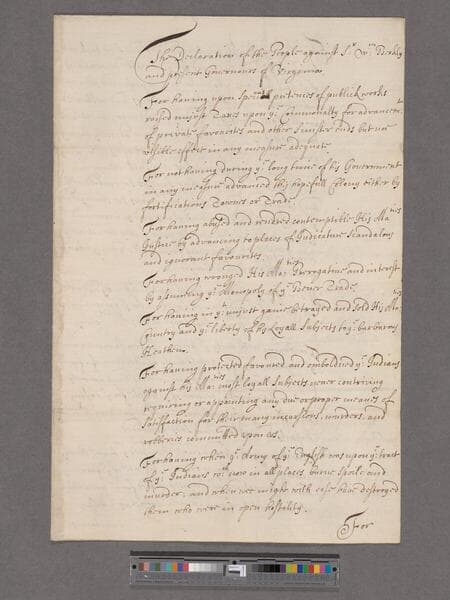 The Declaration of the People against Sr. Wm. Berkly
and present Governours of Virginia
For having upon specious pretences of publick works
raised unjust Taxes upon ye Commonalty for advancemt.
of private favourits and other sinister ends but noe
visible effect in any measure adequate
For not having during ye long time of his Government
in any measure advanced this hopefull Colony either by
fortifications Townes or Trade
For having abused and rendred contemptible His Maties
Justice by advancing to places of Judicature Scandalous
and ignorant favourites.
For having wronged His Maties Prerogative and interest
by assuming ye Monopoly of ye Bever Trade.
For having in yt unjust gaine betrayed and sold His Maties
Country and ye liberty of his Loyall Subjects to ye barbarous
Heathen.
For having protected favoured and emboldned ye Indians
against his Maties most loyall Subjects never contriving
requiring or appointing any due or proper meanes of
satisfaction for their many incursions, murders, and
robberies committed upon us.
For having when ye Army of ye English was upon ye tract
of ye Indians, wch. now in all places, burne spoile and
murder, and when we might with ease have destroyed
them who were in open hostility.
For